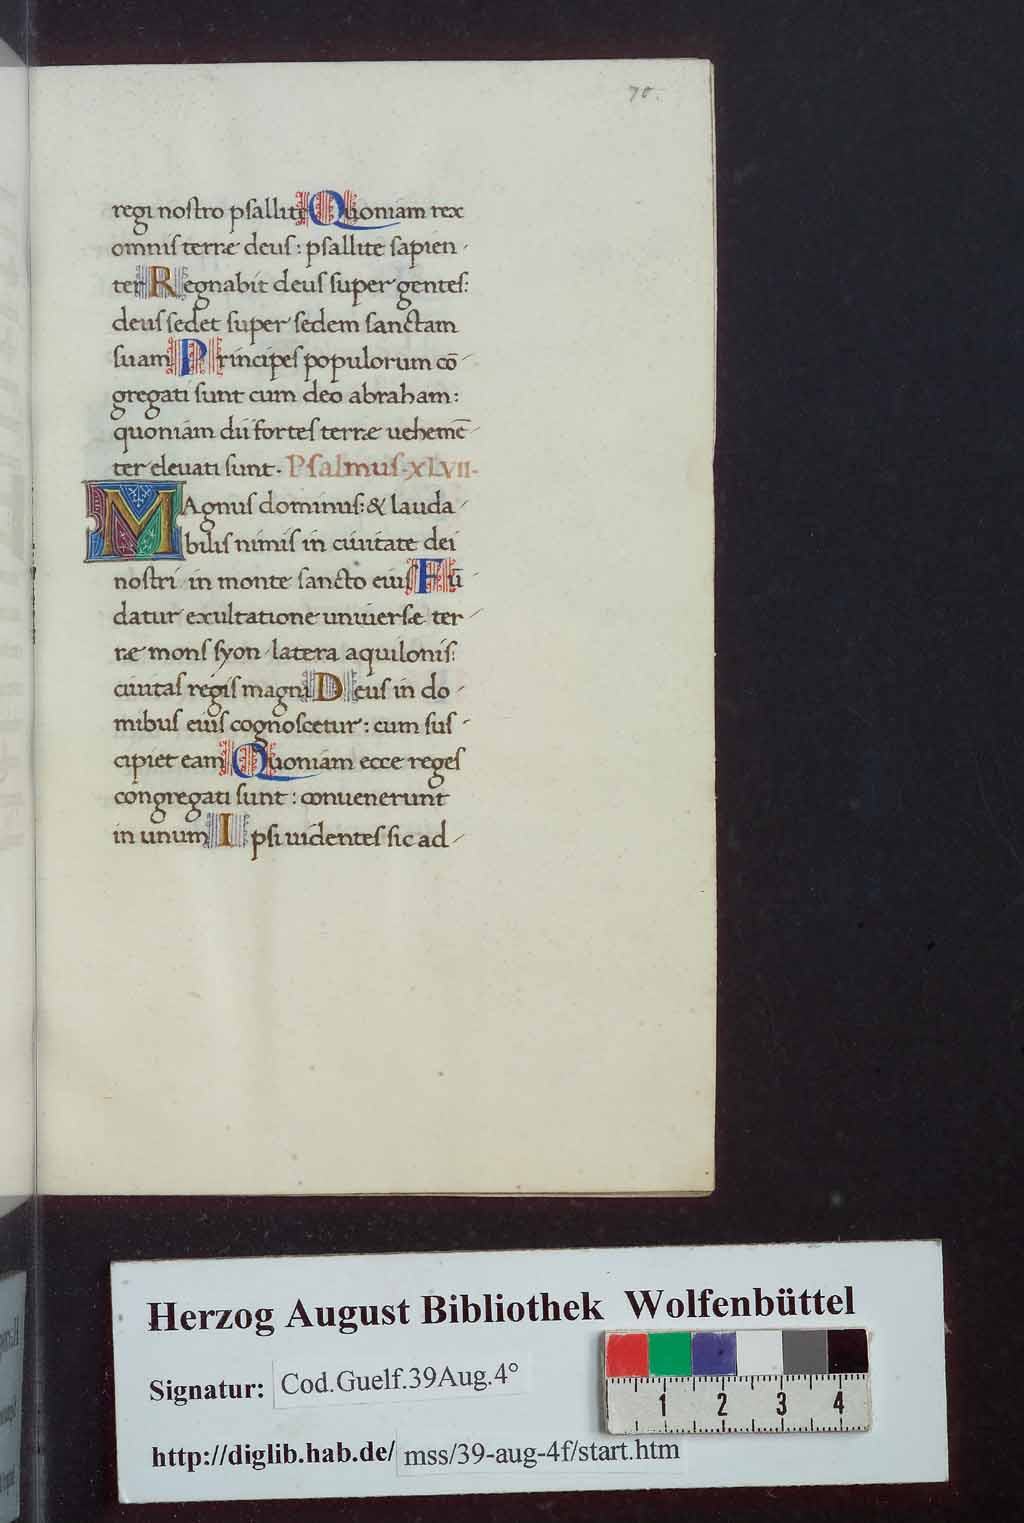 70.
regi nostro psallite Quoniam rex
omnis terræ deus: psallite sapien-
ter Regnabit deus super gentes:
deus sedet super sedem sanctam
suam Principes populorum cō-
gregati sunt cum deo abraham:
quoniam dii fortes terræ uehemē-
ter eleuati sunt. Psalmus. XLVII.
MAgnus dominus: & lauda-
bilis nimis in ciuitate dei
nostri in monte sancto eius Fū-
datur exultatione uniuersæ ter-
ræ mons syon latera aquilonis:
ciuitas regis magni Deus in do-
mibus eius cognoscetur: cum sus-
cipiet eam Quoniam ecce reges
congregati sunt: conuenerunt
in unum Ipsi uidentes sic ad-
Herzog August Bibliothek Wolfenbüttel
Signatur: Cod.Guelf.39Aug.4°
http://diglib.hab.de/ mss/39-aug-4f/start.htm
1 2 3 4